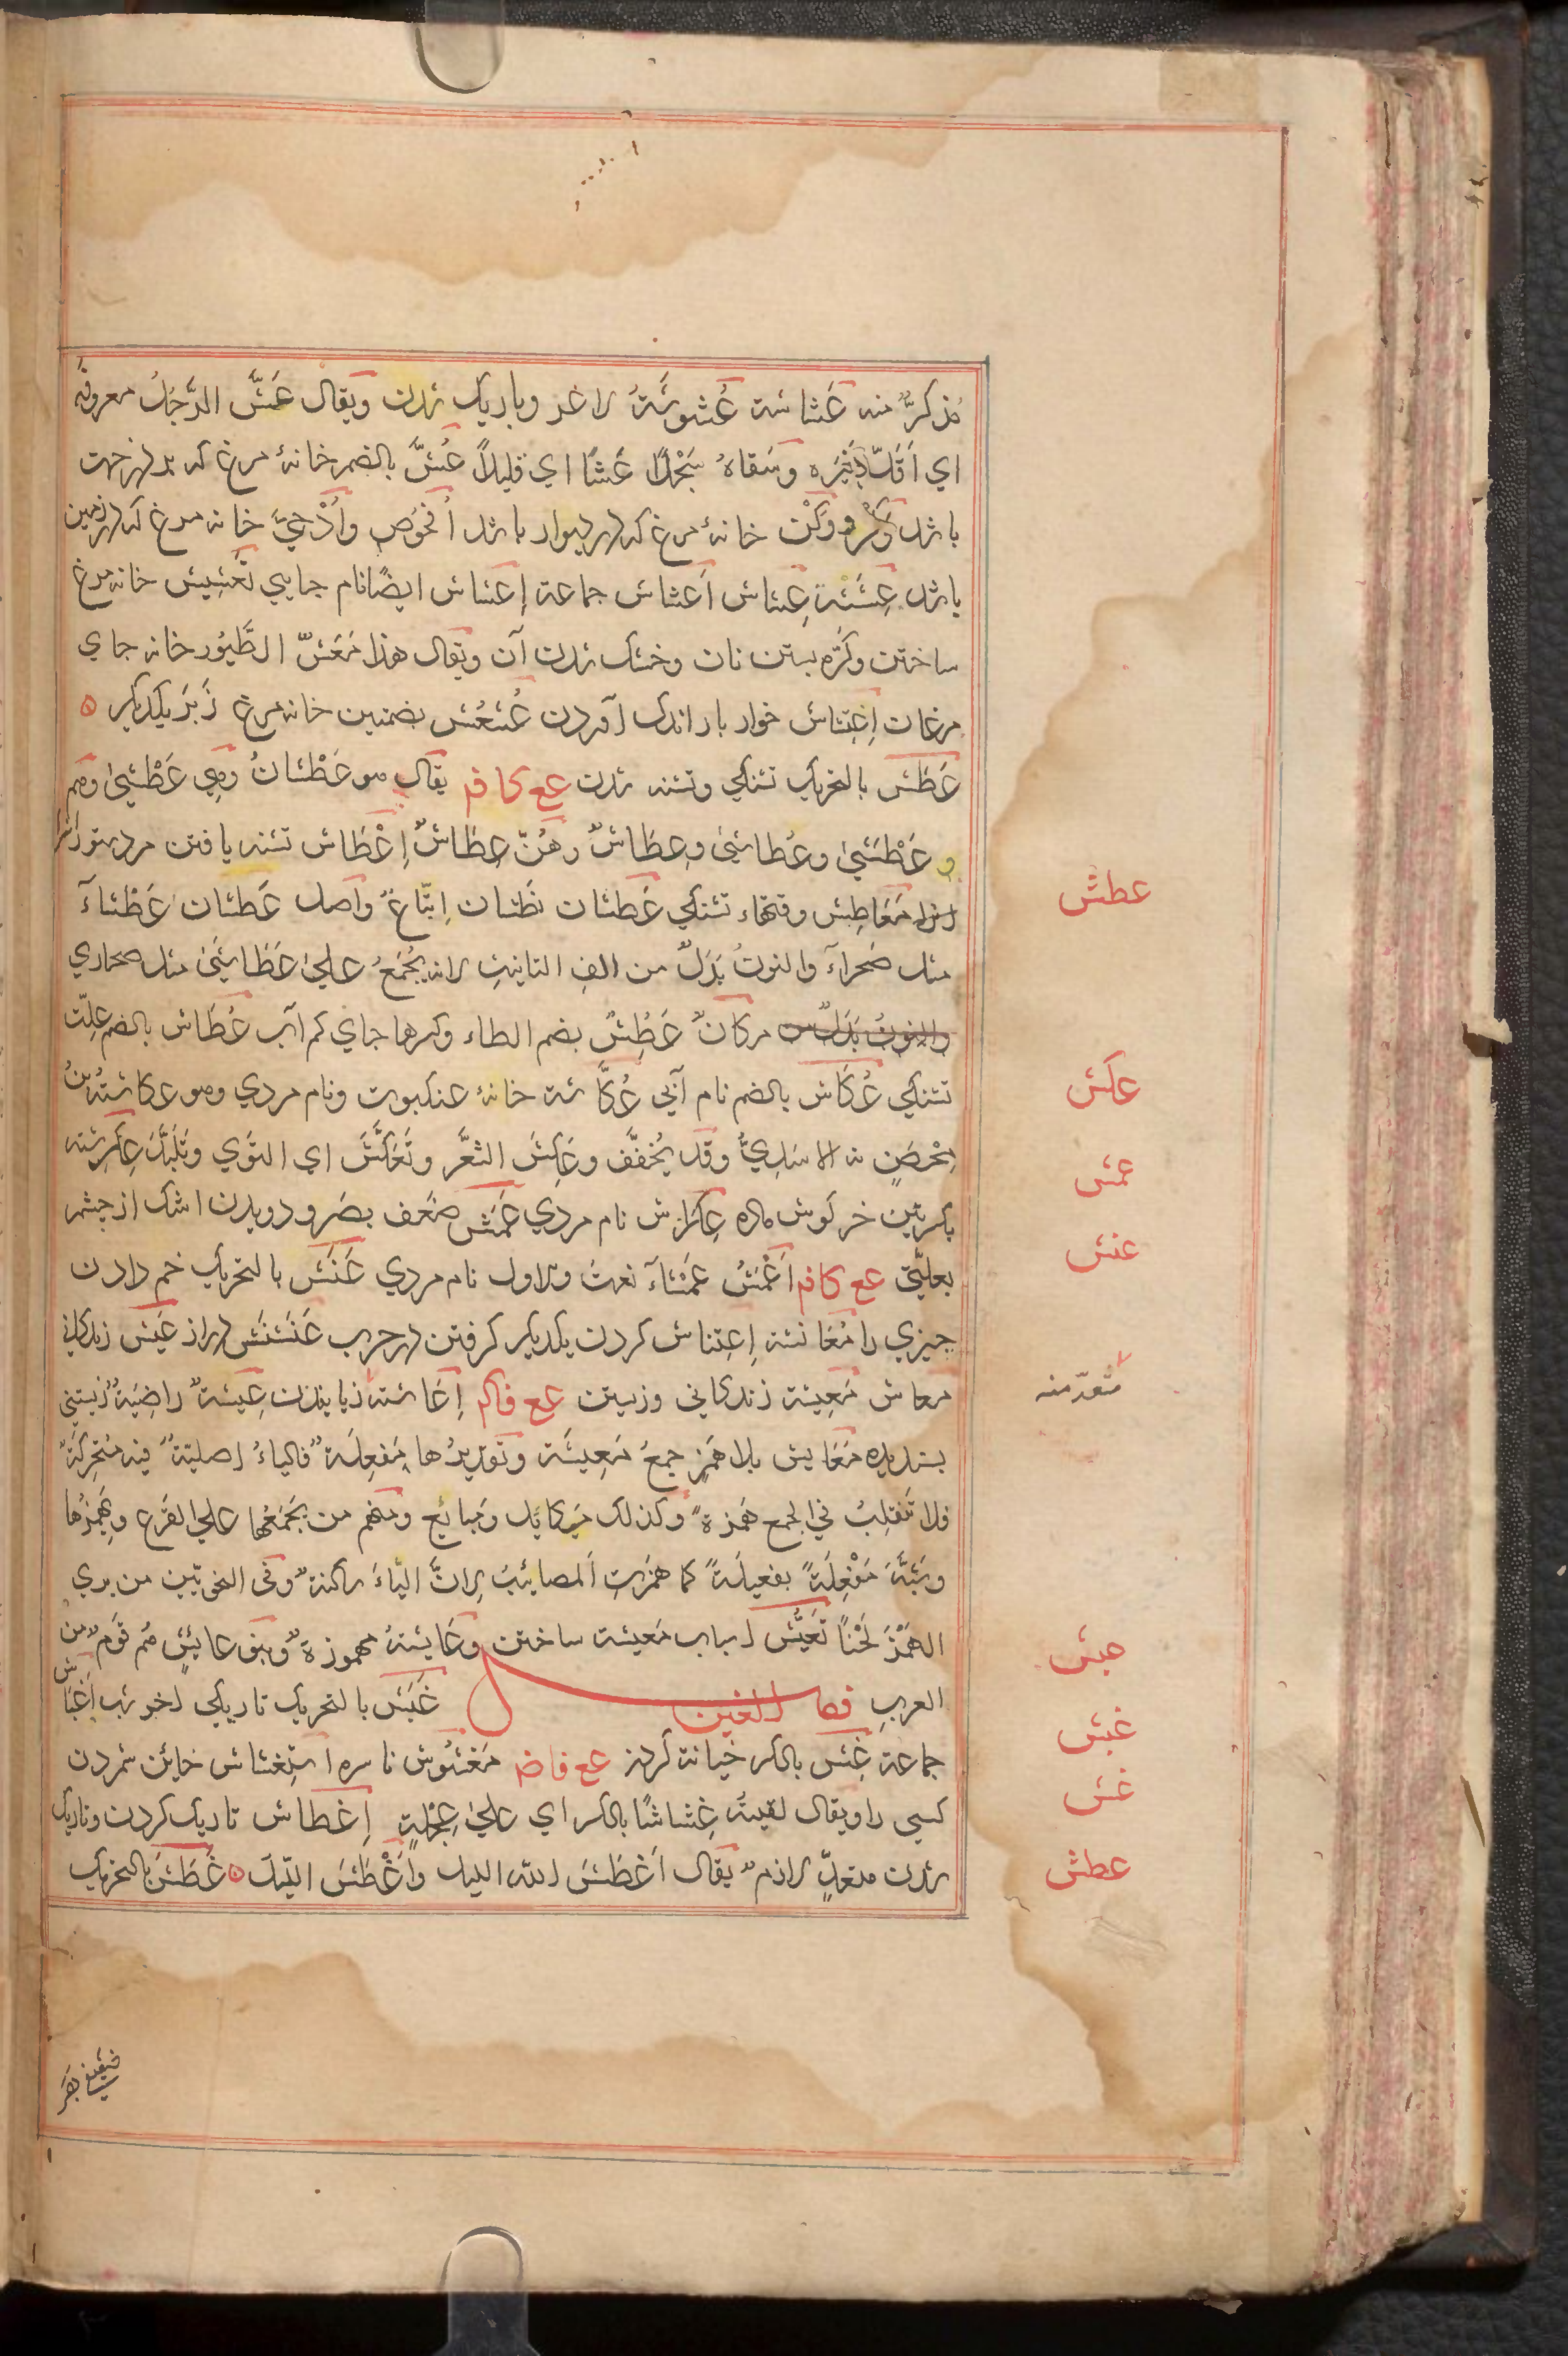 مذکرٌ منه عَشَاشة عُشوشَةً لاغر وباریک شدن ویقال عَشَّ الرَّجُلُ معروفَه
اي اَقَلَّ وسَقاهُ سَجْلًا عَشًّا اي قلیلاً عُشٌّ بالضم خانۀ مرغ که بدرخت
باشد وَکْر ووَکْن خانۀ مرغ که در دیوار باشد اُفْحُوص واُدْحِيّ خانه مرغ که در زمین
باشد عِشَشَة عِشَاش اَعْشَاش جماعة اِعشاش ایضًا نام جایي تَعشِیش خانه مرغ
ساختن وکَرَّه بستن نان وخشک شدن آن ویقال هذا مَعَشّ الطَّیُور خانه جاي
مرغان اِعْتِشَاش خوار بار اندک آوردن عُشعُش بضمتین خانه مرغ زَبَر یکدیکر
عَطَش بالتحریک تشنکي وتشنه شدن عع کا فم یقال هو عَطْشانُ وهِي عَطْشَيٰ وهم
و عَطْشَيٰ وعُطاشَيٰ وعِطاشٌ وهُنّ عِطاشٌ اِعْطَاش تشنه یافتن مرد ستور
مَعَاطِش وقتهاء تشنکي عَطشان نَطشان اِتّباعٌ واصل عَطشان عَطْشآءَ
مثل صَحراءَ والنونُ بَدَلٌ من الف التانیث لانه یُجْمَعُ عليٰ عَطَاشَيٰ مثل صحاري
والنونُ بَدَلٌ من مرکانٌ عَطُِشٌ بضم الطاء وکسرها جاي کم آب عُطَاش بالضم علّت
تشنکي عُکَاش بالضم نام آبي عُکَّاشة خانۀ عنکبوت ونام مردي وهو عکاشةُ بنُ
مِحْصَنٍ الاسَدِيُّ وقد یُخفَّف وعَکِشَ الشعَّر وتَعَکَّشَ اي التَوَي وتَلَبَّدَ عِکرِشة
بکسرتین خرکوش ماده عِکرَاش نام مردي عَمَش ضَعف بصر ودویدن اشک از چشم
بعلّتي عع کا فم اَعْمَشُ عَمْشَآءَ نعت والاول نام مردي عَنَش بالتحریک خم دادن
چیزي را مُعَانشة اِعتِناش کردن یکدیکر کرفتن در حرب عَنَشنَش دراز عَیش زندکاني
معاش مَعِیشة زندکاني وزیستن عع فاکم اِعَاشة زیانیدن عِیشةٌ راضِیَةٌ زیستني
پسندیده مَعَایش بلا هَمزٍ جمعُ مَعِیشَة وتقدیرُها مَفعِلَةٌ فالیاءُ اصلیّةٌ فیه مُتحرِّکةٌ
فلا تَنقلِبُ في الجمع هَمزةً وکذلک مَکایِلُ ومَبایِعُ ومنهم من یَجْمَعُها علي الفَرع ویَهمِزُها
وشَبَّهَ مَفْعِلَةً بفعیلَةً کما همزتِ المصائبَ لانّ الیّاءَ ساکنةٌ وفي النحویّین من یري
الهَمْزَ لَحْنًا تَعَیُّش اسباب مَعیشة ساختن وعَایشَةُ مهموزةٌ وبنو عایشٍ هم قومٌ من
العربِ فصل الغین غَبَش بالتحریک تاریکي اخر شب اَغْبَاش
جماعة غِش بالکسر خیانة کردن عع فا ضم مَغشُوش ناسره استِغشاش خاین شمردن
کسي را ویقال لقیتُه غِشاشًا بالکسر اي عليٰ عِجْلَةٍ اِغطاش تاریک کردن وتاریک
شدن متعدٍّ لازمٌ یقال اَغطَشَ الله اللیل واَغْطَشَ اللیلَ غَطَشَ بالتحریک
عطش
عکش
عمش
عنش
عیش
غبش
غش
غطش